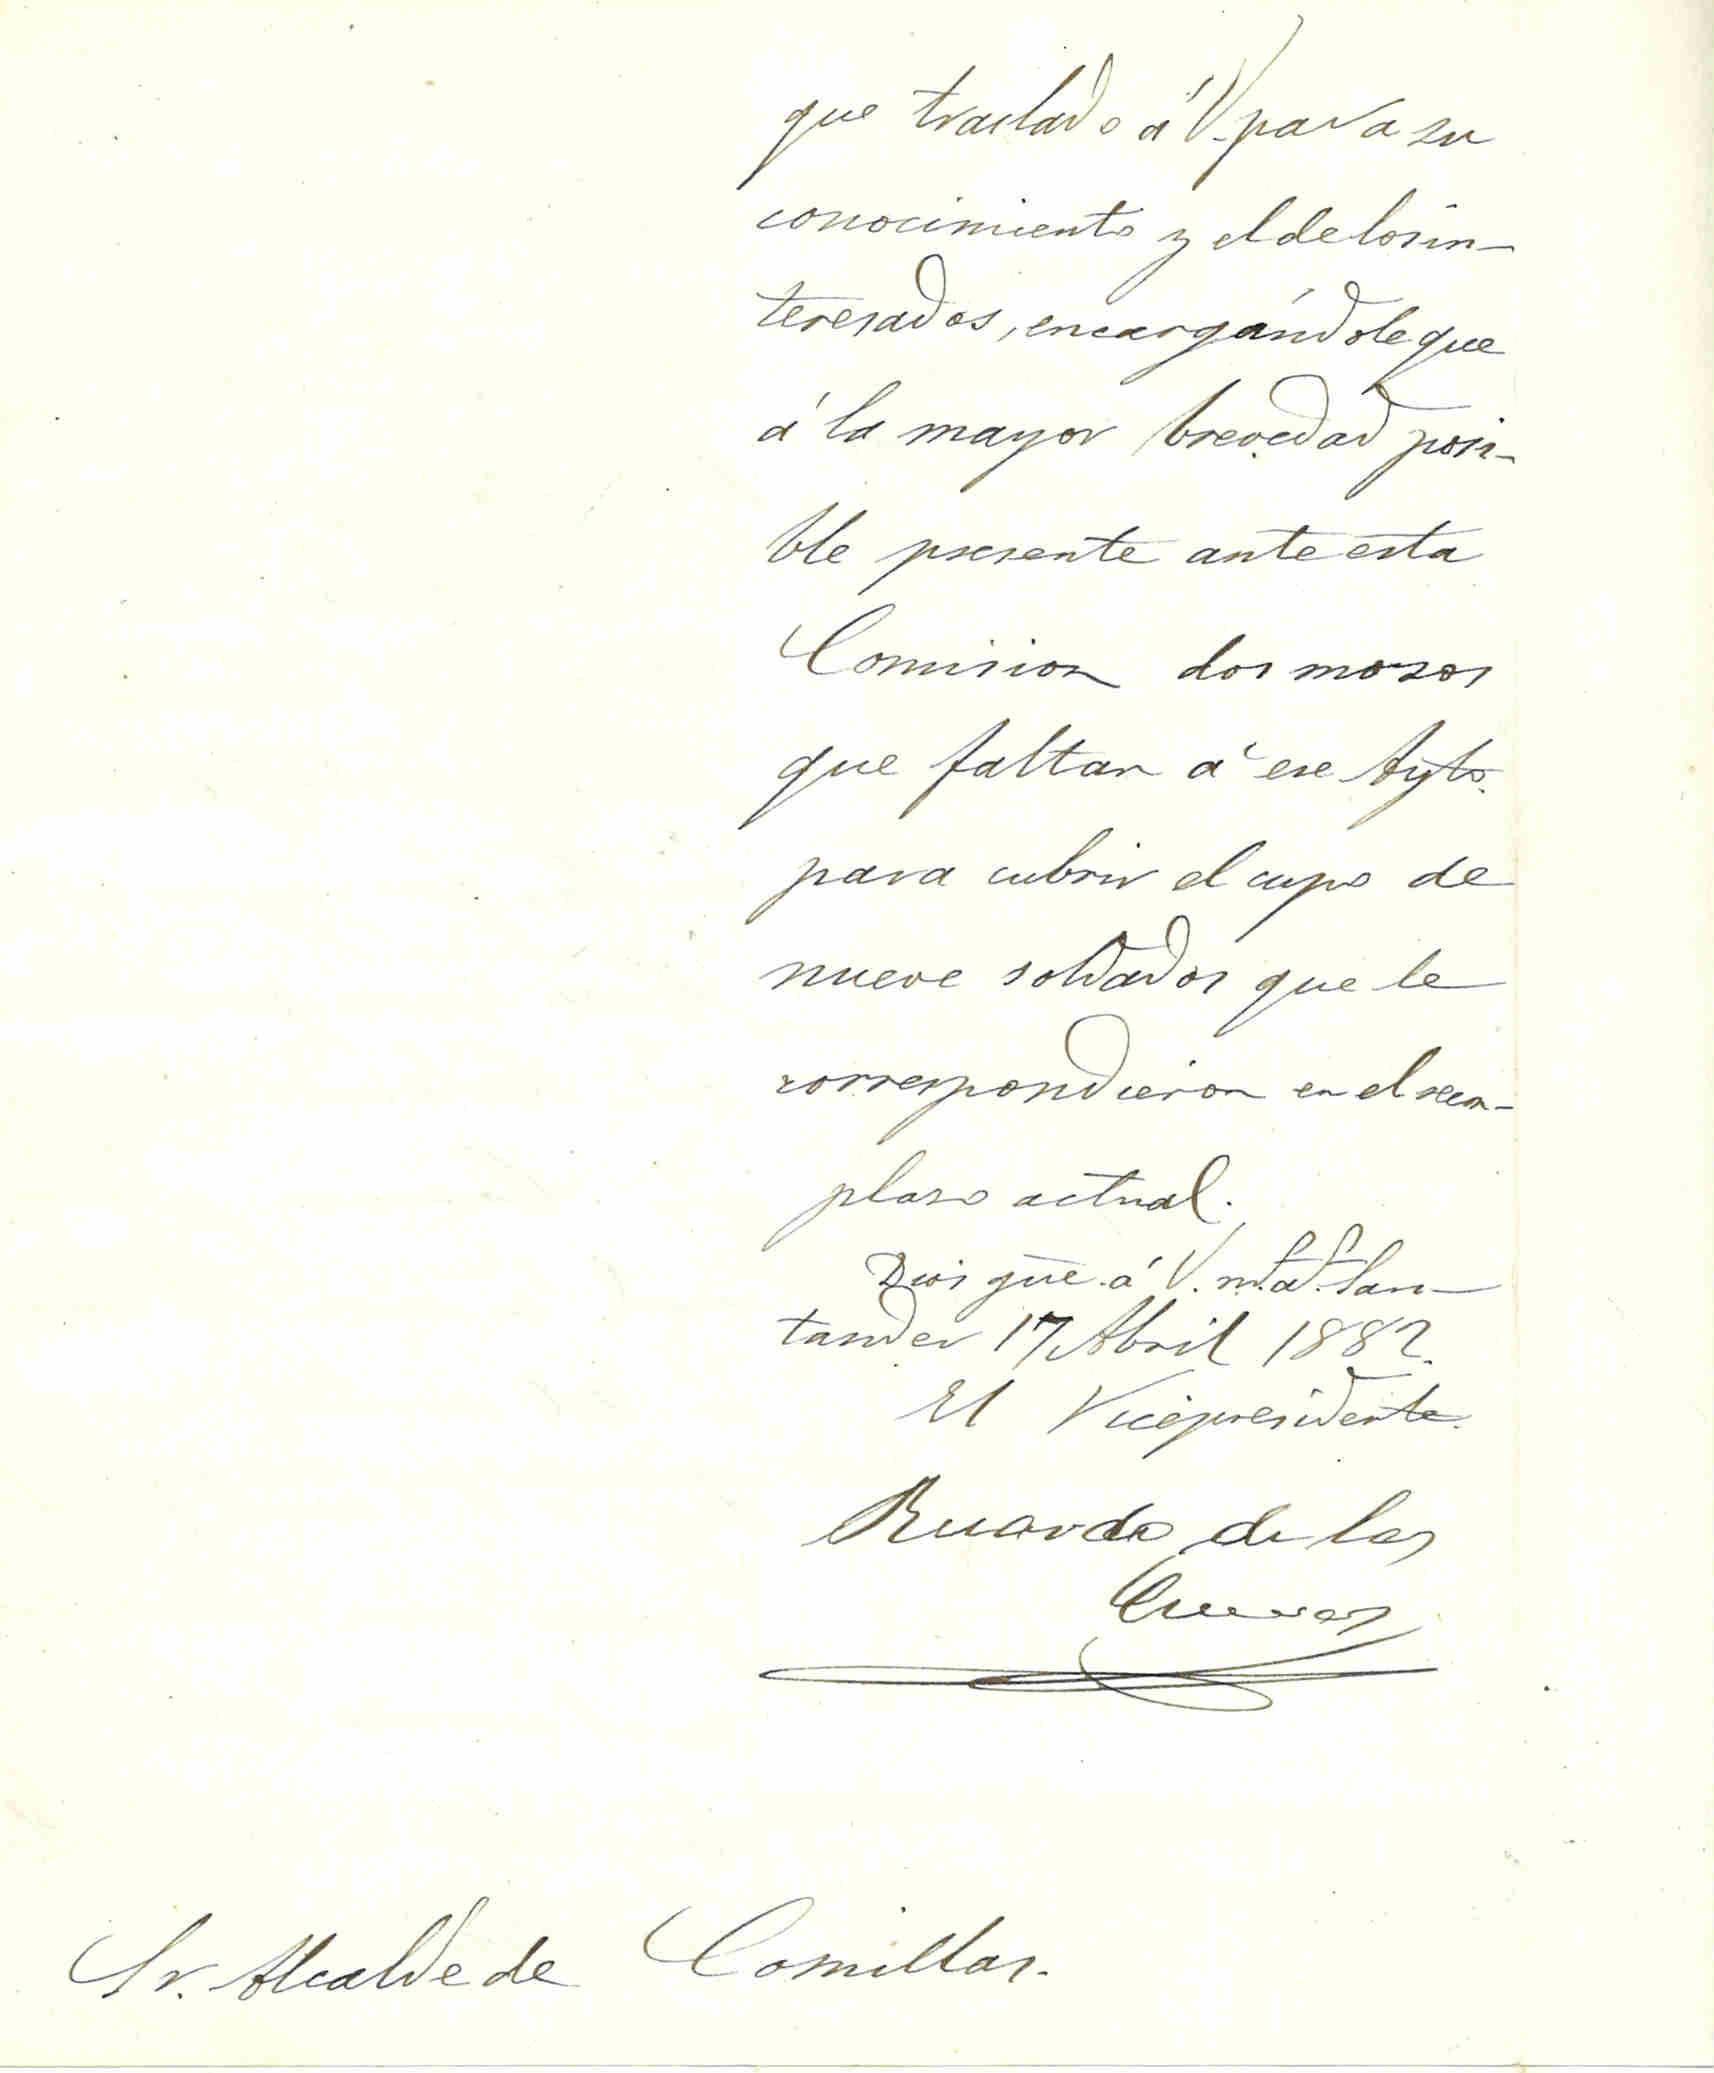 que traslado á V. para su
conocimiento y el de los in-
teresados, encargándole que
á la mayor brevedad posi-
ble presente ante esta
Comision dos mozos
que faltan á ese Ayto.
para cubrir el cupo de
nueve soldados que le
correspondieron en el reem-
plazo actual.
Dios gue. á V. m.s a.s San-
tander 17 Abril 1882.
El Vicepresidente.
Ricardo de las
Cuevas
Sr. Alcalde de Comillas.